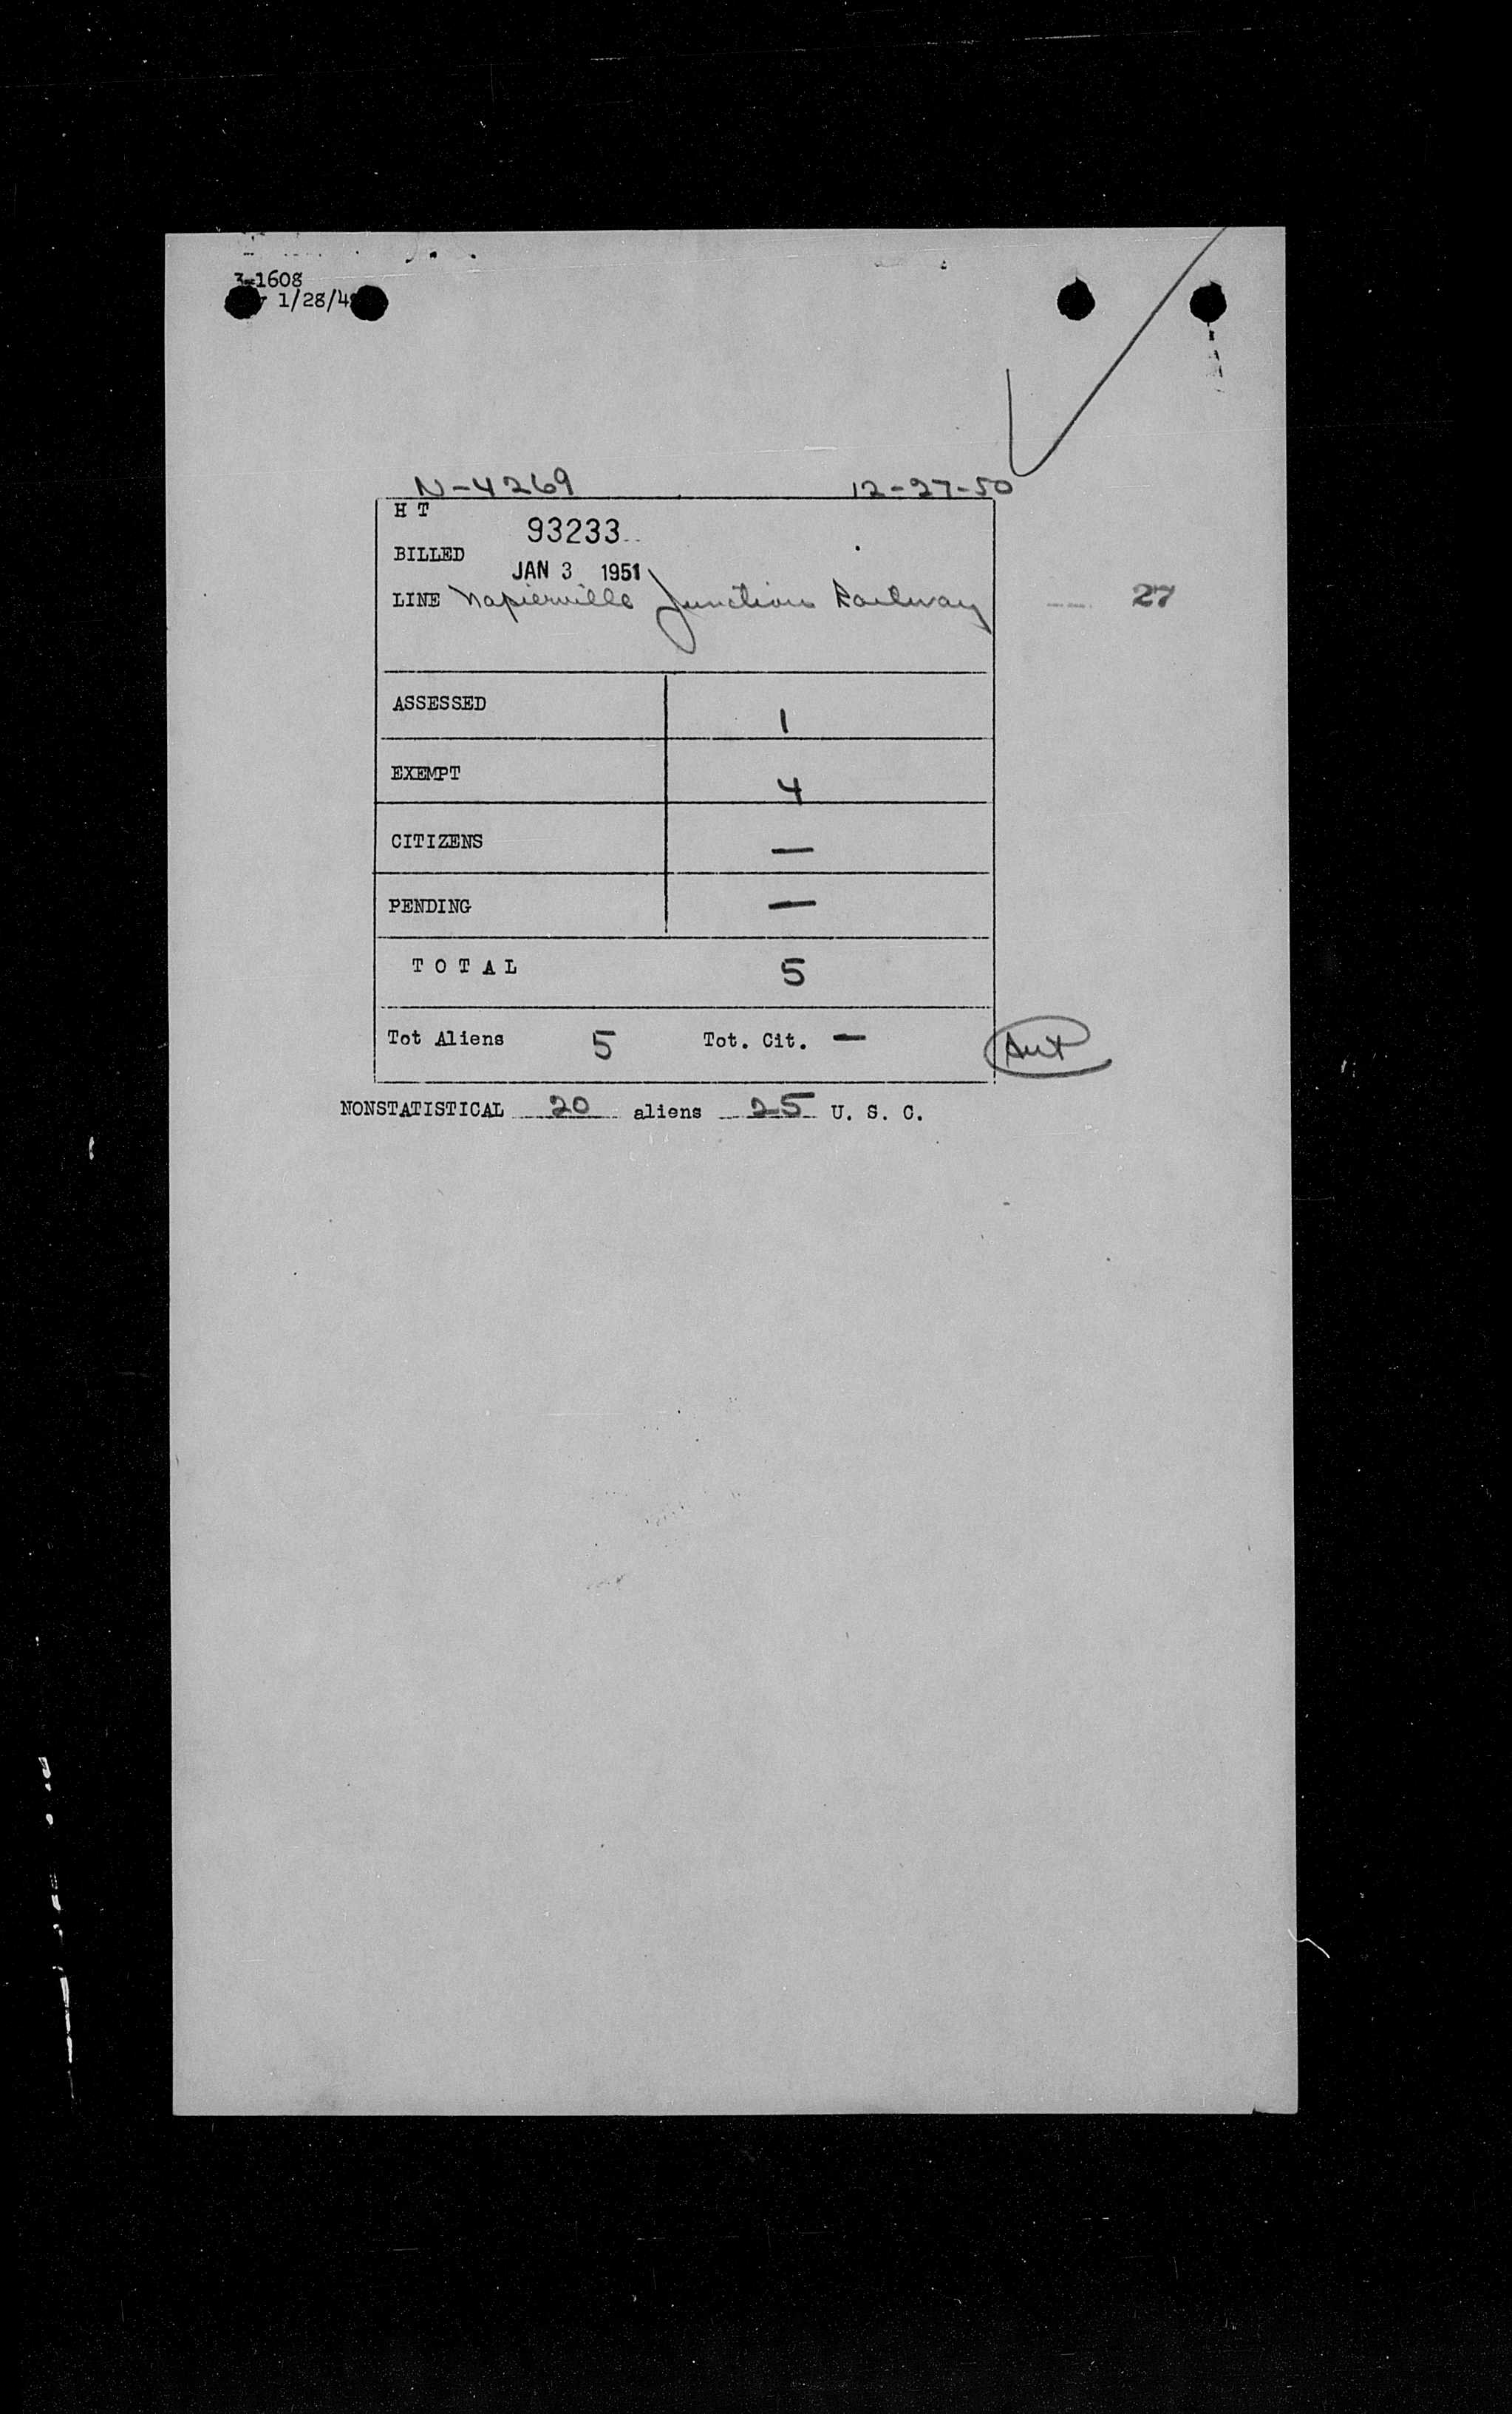 3-1608
1/28/4
N-4269 12-27-50
H T
93233
BILLED
JAN 3 1951
LINE Napierville Junction Railway 27
ASSESSED 1
EXEMPT 4
CITIZENS —
PENDING —
T O T A L 5
Tot Aliens 5 Tot. Cit. —
NONSTATISTICAL 20 aliens 25 U. S. C.